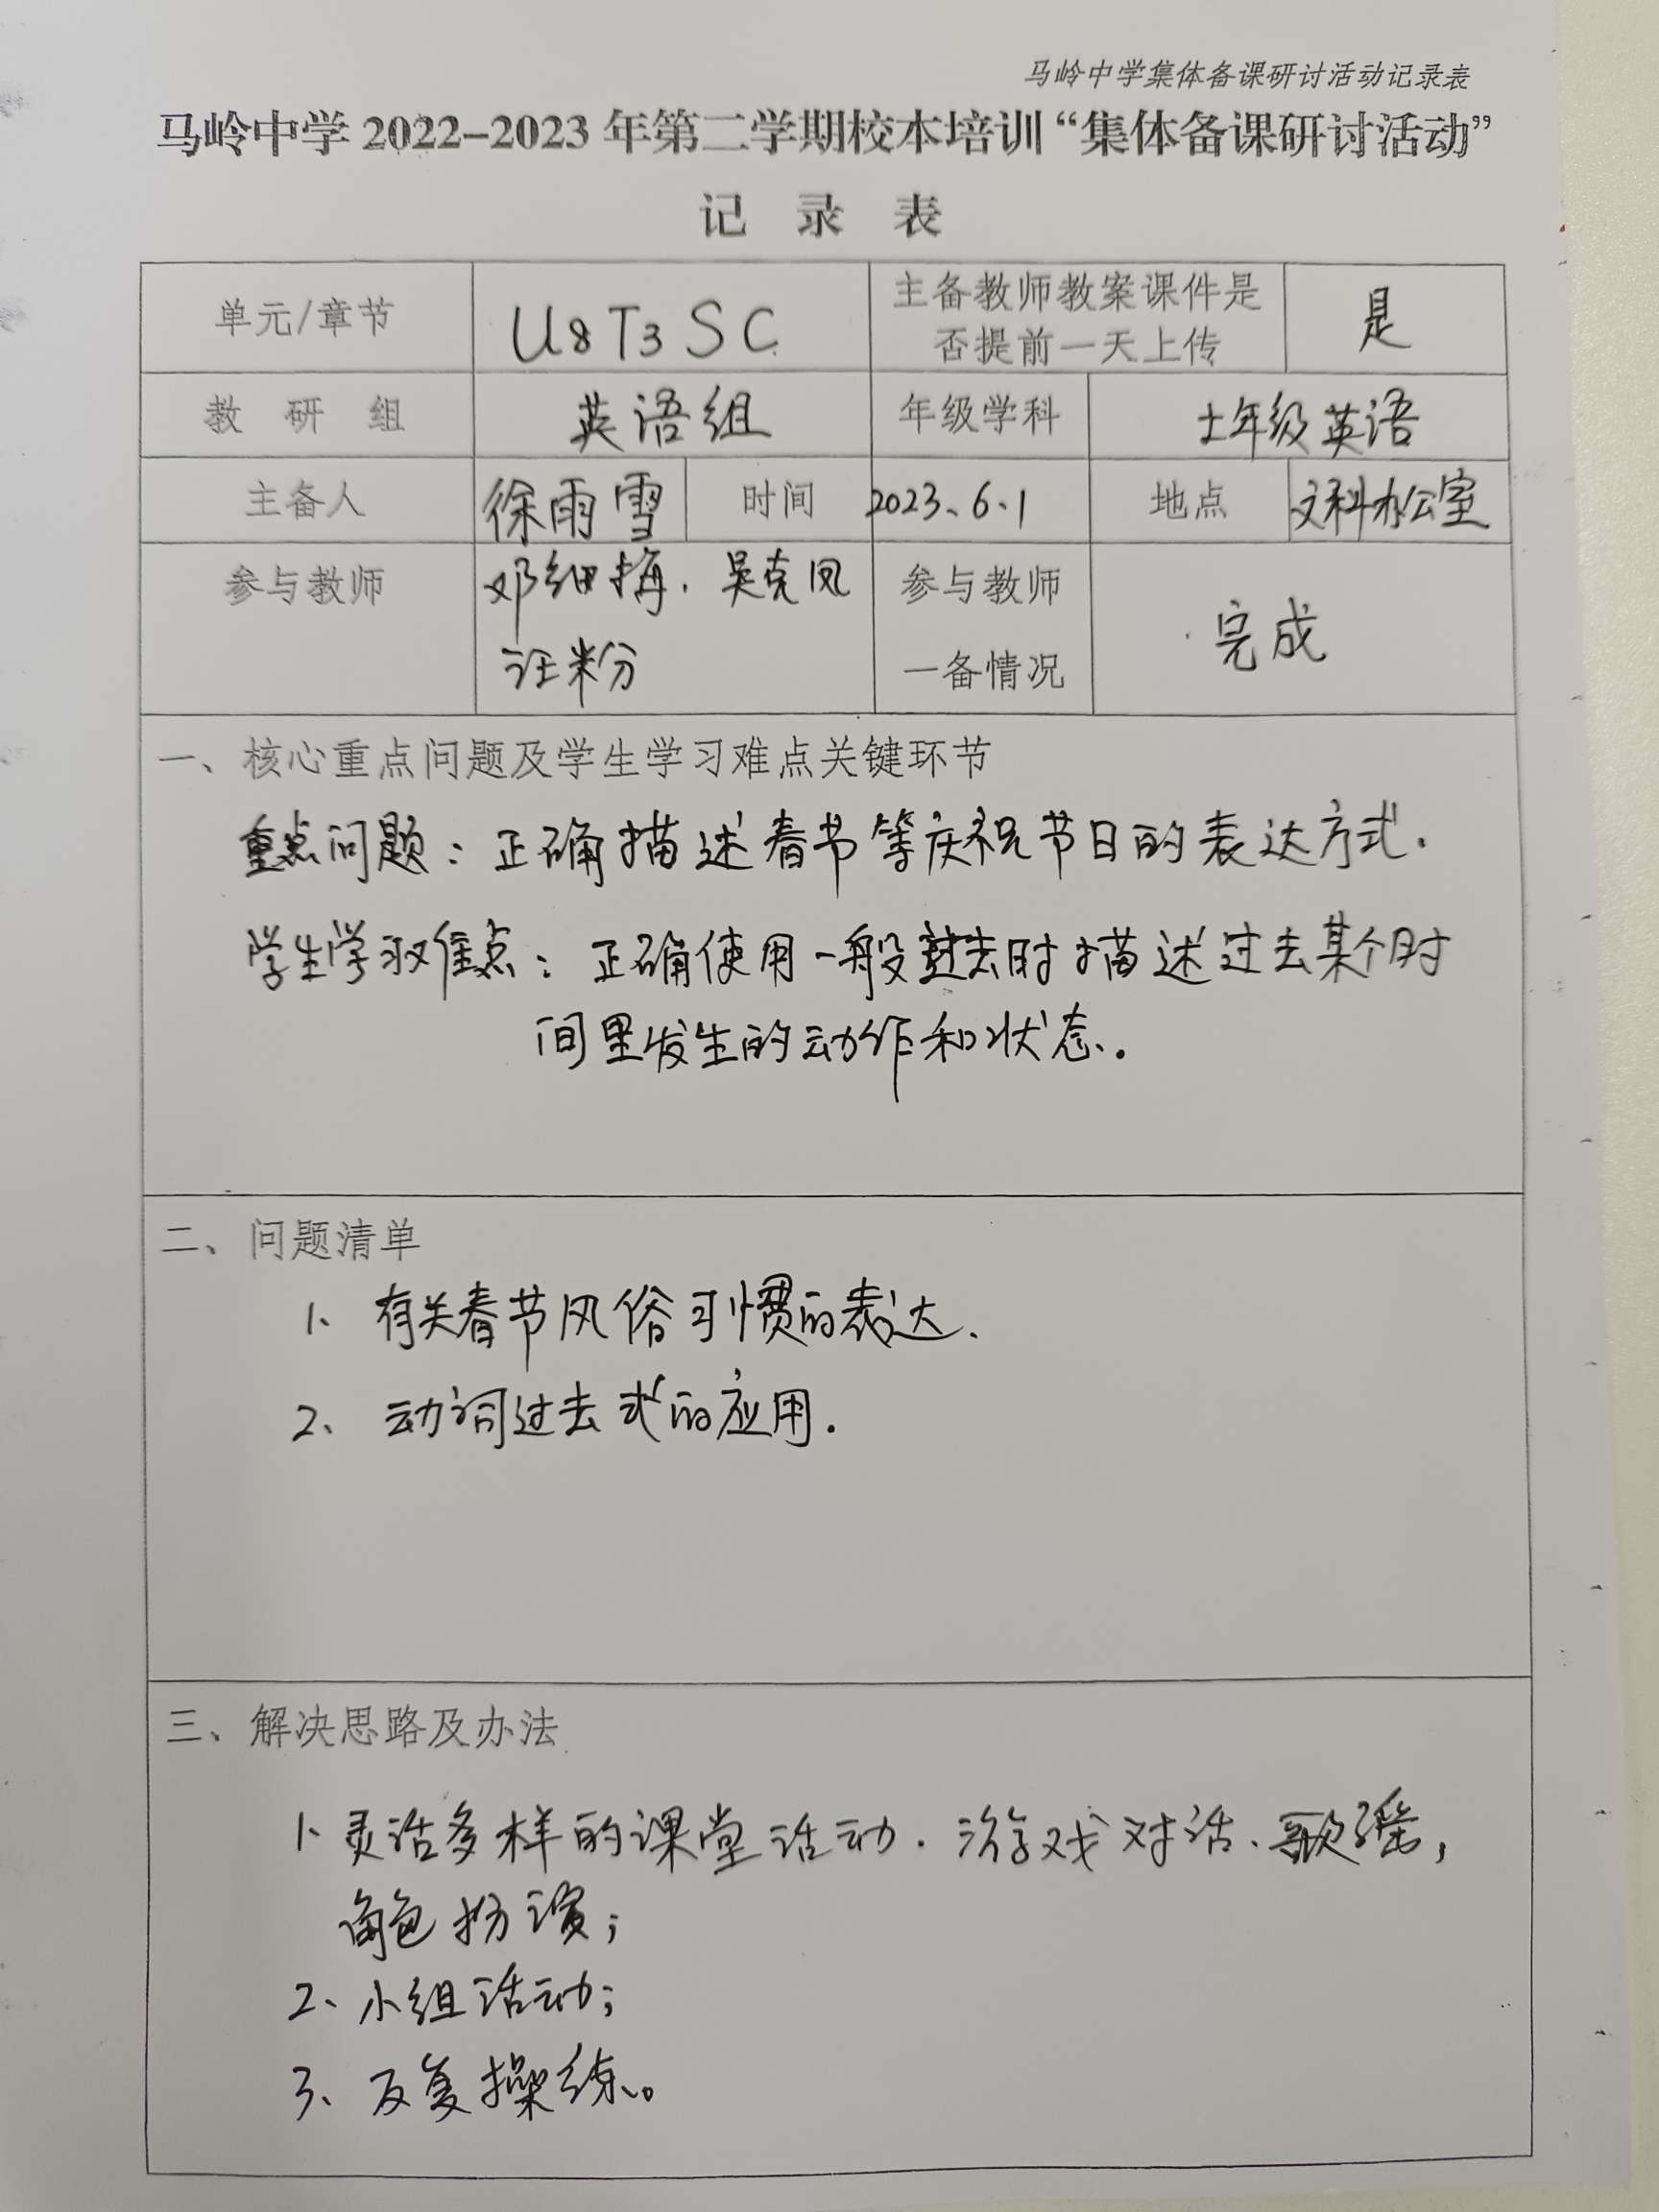 马岭中学集体备课研讨活动记录表
马岭中学 2022-2023 年第二学期校本培训“集体备课研讨活动”
记 录 表
单元/章节 U8T3SC 主备教师教案课件是否提前一天上传 是
教 研 组 英语组 年级学科 七年级英语
主备人 徐雨雪 时间 2023、6、1 地点 文科办公室
参与教师 邓细梅、吴克凤 参与教师 完成
汪粉 一备情况
一、核心重点问题及学生学习难点关键环节
重点问题：正确描述春节等庆祝节日的表达方式.
学生学习难点：正确使用一般过去时描述过去某个时
间里发生的动作和状态.
二、问题清单
1、有关春节风俗习惯的表达.
2、动词过去式的应用.
三、解决思路及办法
1、灵活多样的课堂活动.游戏对话、歌谣，
角色扮演；
2、小组活动；
3、反复操练。